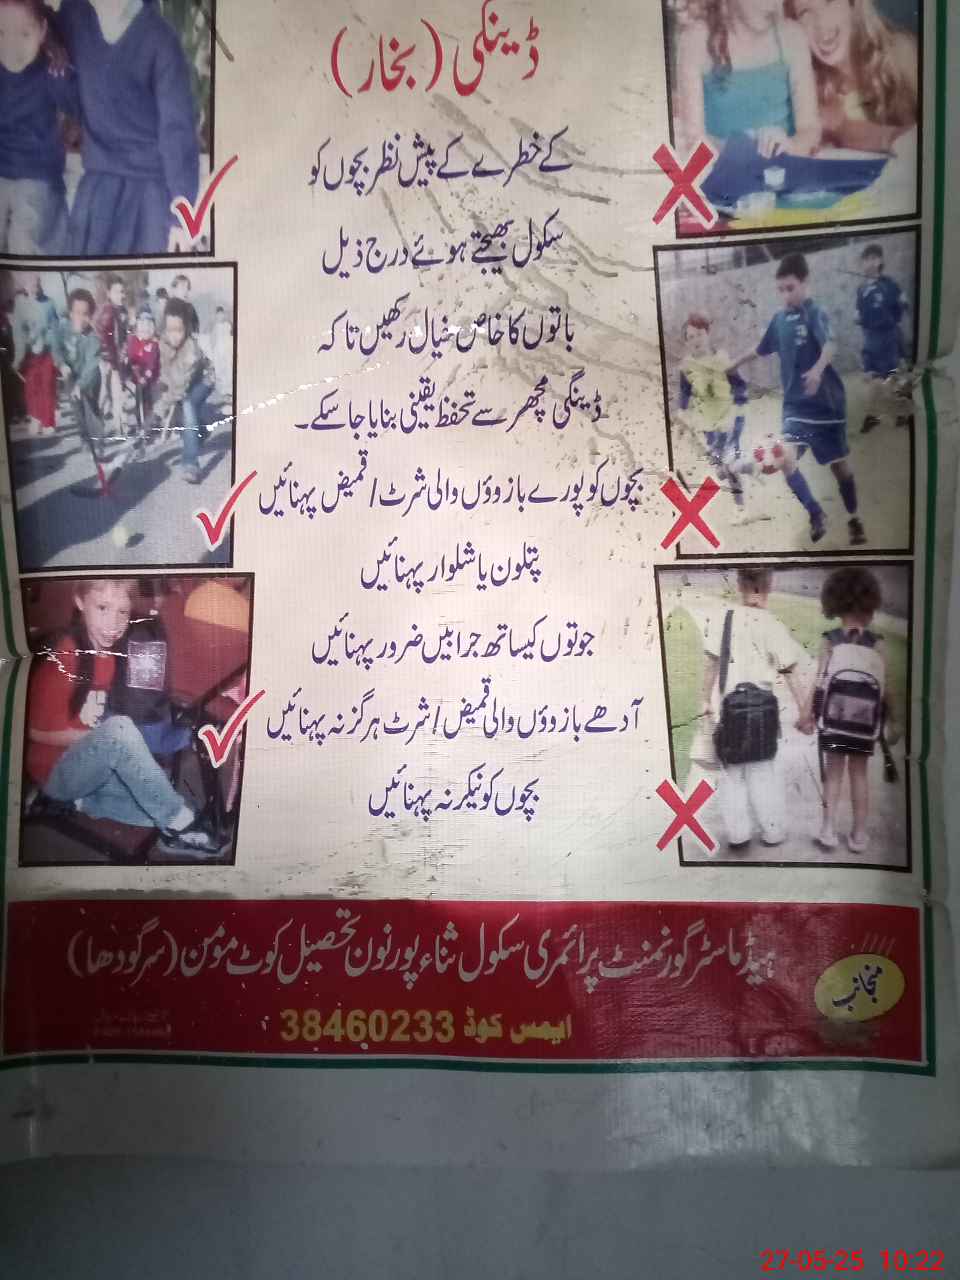 ڈینگی (بخار)
کے خطرے کے پیش نظر بچوں کو
سکول بھیجتے ہوئے درج ذیل
باتوں کا خاص خیال رکھیں تا کہ
ڈینگی مچھر سے تحفظ یقینی بنایا جا سکے۔
بچوں کو پورے بازوؤں والی شرٹ / قمیض پہنائیں
پتلون یا شلوار پہنائیں
جوتوں کیساتھ جرابیں ضرور پہنائیں
آدھے بازوؤں والی قمیض / شرٹ ہرگز نہ پہنائیں
بچوں کو نیکر نہ پہنائیں
منجانب
ہیڈ ماسٹر گورنمنٹ پرائمری سکول ثناء پور نون تحصیل کوٹ مومن (سرگودھا)
ایمس کوڈ 38460233
27-05-25 10:22